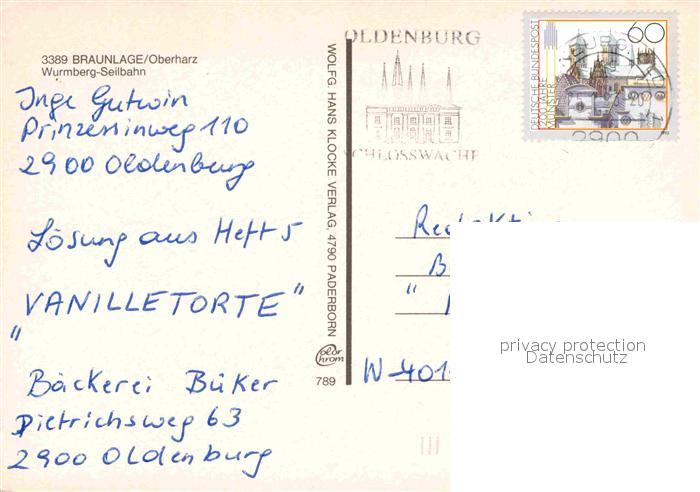 3389 BRAUNLAGE/Oberharz
Wurmberg-Seilbahn
Inge Gutwin
Prinzessinweg 110
2900 Oldenburg
Lösung aus Heft 5
"VANILLETORTE"
Bäckerei Büker
Dietrichsweg 63
2900 Oldenburg
WOLFG. HANS KLOCKE VERLAG, 4790 PADERBORN
color chrom
789
OLDENBURG
SCHLOSSWACHE
DEUTSCHE BUNDESPOST
1200 JAHRE
MÜNSTER
60
2900
W-401
privacy protection
Datenschutz